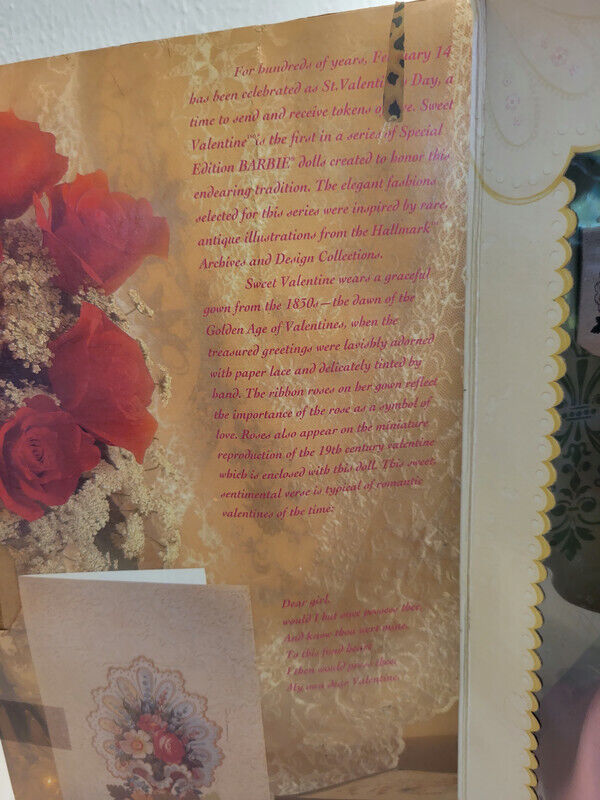 For hundreds of years, February 14
has been celebrated as St.Valentine's Day, a
time to send and receive tokens of love. Sweet
Valentine™ is the first in a series of Special
Edition BARBIE® dolls created to honor this
endearing tradition. The elegant fashions
selected for this series were inspired by rare,
antique illustrations from the Hallmark™
Archives and Design Collections.
Sweet Valentine wears a graceful
gown from the 1850s—the dawn of the
Golden Age of Valentines, when the
treasured greetings were lavishly adorned
with paper lace and delicately tinted by
hand. The ribbon roses on her gown reflect
the importance of the rose as a symbol of
love. Roses also appear on the miniature
reproduction of the 19th century valentine
which is enclosed with this doll. This sweet,
sentimental verse is typical of romantic
valentines of the time:
Dear girl,
would I but once possess thee,
And know thou wert mine,
To this fond heart
I then would press thee,
My own dear Valentine.